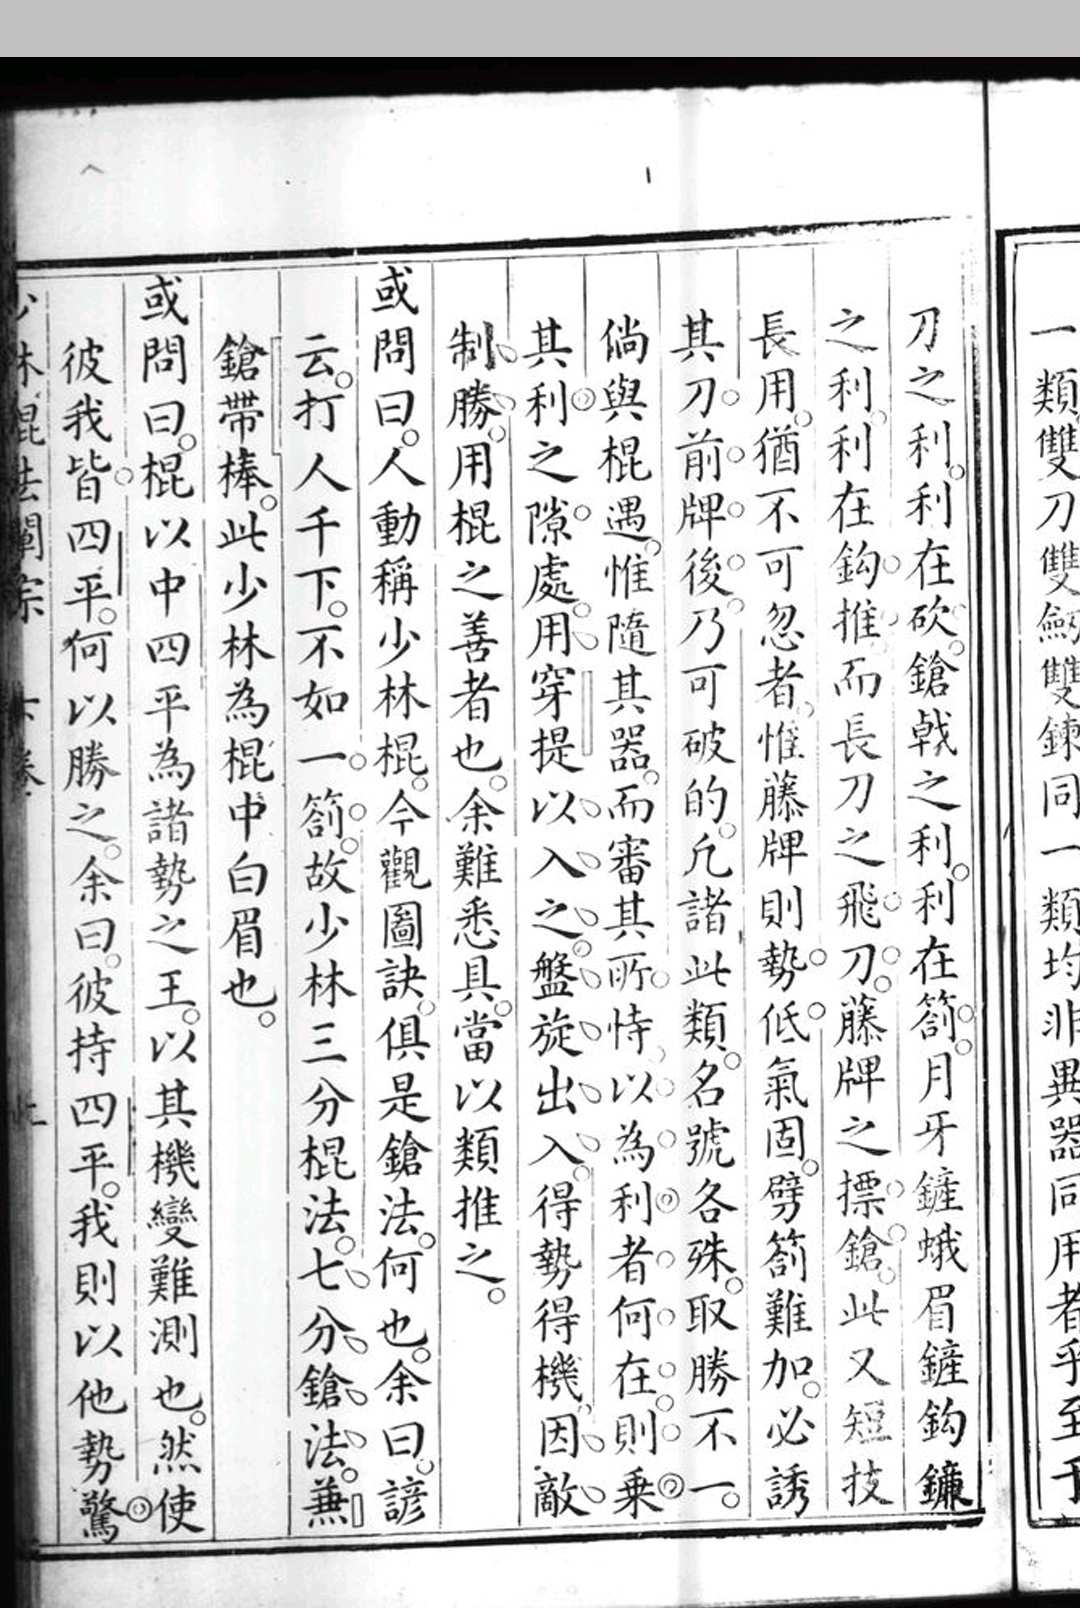 一類雙刀雙劒雙鍊同一類均非異器同用者乎至于
刀之利利在砍鎗戟之利利在劄月牙鏟蛾眉鏟鈎鐮
之利利在鈎推而長刀之飛刀藤牌之摽鎗此又短技
長用猶不可忽者惟藤牌則勢低氣固劈劄難加必誘
其刀前牌後乃可破的凢諸此類名號各殊取勝不一
倘與棍遇惟隨其器而審其所恃以為利者何在則乗
其利之隙處用穿提以入之盤旋出入得勢得機因敵
制勝用棍之善者也余難悉具當以類推之
或問曰人動稱少林棍今觀圖訣俱是鎗法何也余曰諺
云打人千下不如一劄故少林三分棍法七分鎗法兼
鎗帶棒此少林為棍中白眉也
或問曰棍以中四平為諸勢之王以其機變難測也然使
彼我皆四平何以勝之余曰彼持四平我則以他勢驚
少林棍法闡宗 下卷